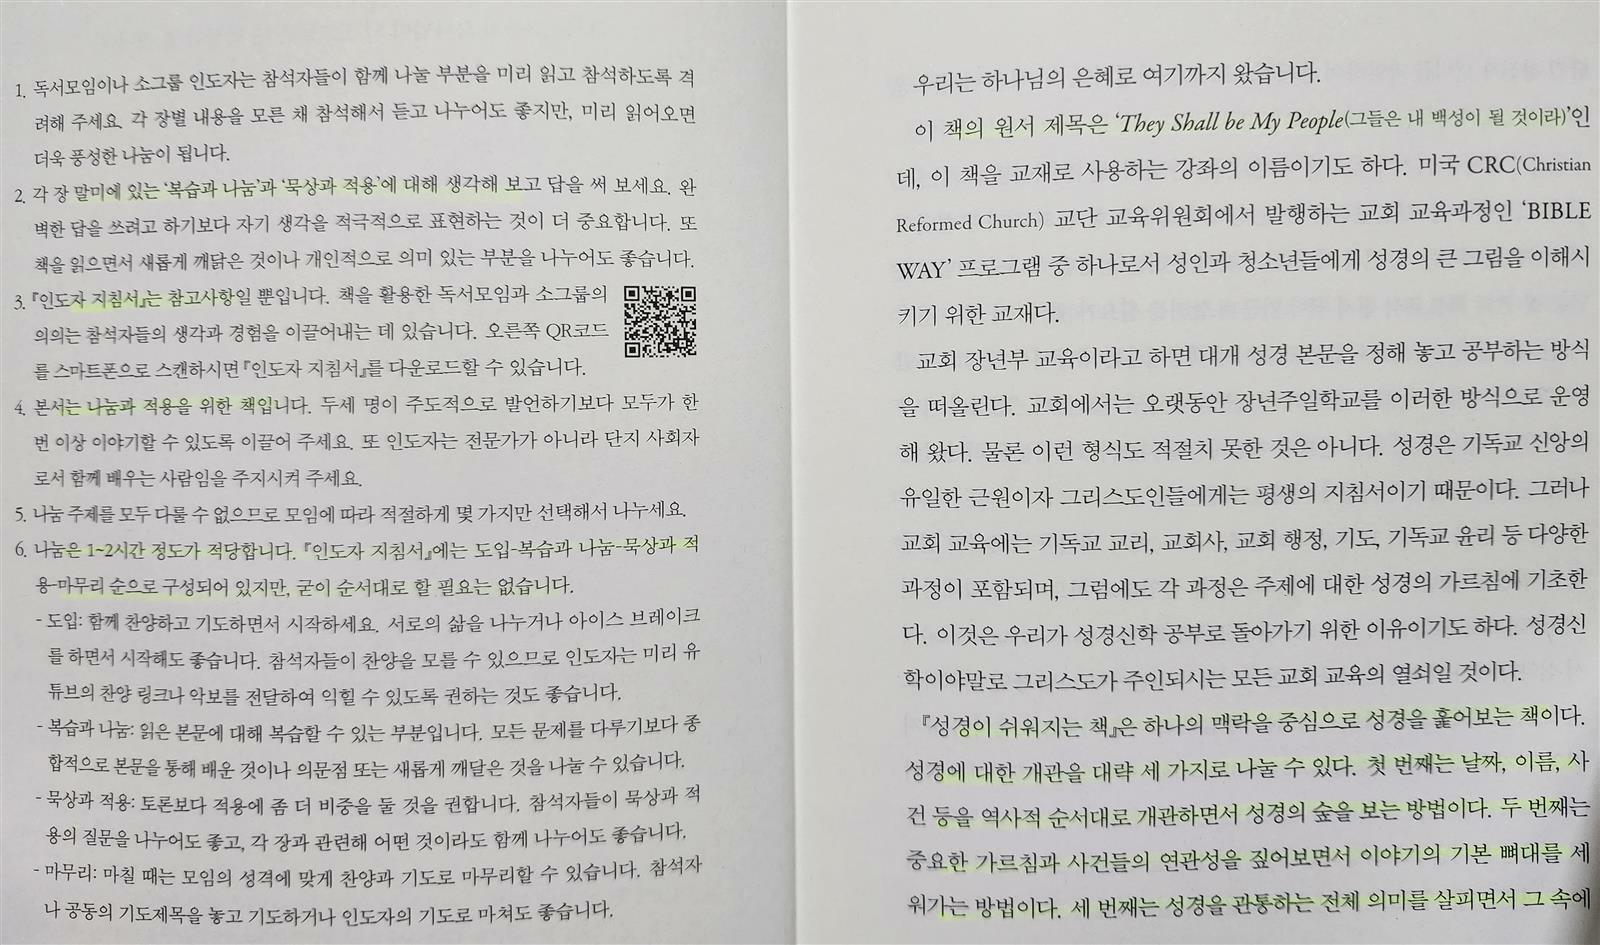 1. 독서모임이나 소그룹 인도자는 참석자들이 함께 나눌 부분을 미리 읽고 참석하도록 격
려해 주세요. 각 장별 내용을 모른 채 참석해서 듣고 나누어도 좋지만, 미리 읽어오면
더욱 풍성한 나눔이 됩니다.
2. 각 장 말미에 있는 ‘복습과 나눔’과 ‘묵상과 적용’에 대해 생각해 보고 답을 써 보세요. 완
벽한 답을 쓰려고 하기보다 자기 생각을 적극적으로 표현하는 것이 더 중요합니다. 또
책을 읽으면서 새롭게 깨닫은 것이나 개인적으로 의미 있는 부분을 나누어도 좋습니다.
3. 『인도자 지침서』는 참고사항일 뿐입니다. 책을 활용한 독서모임과 소그룹의
의의는 참석자들의 생각과 경험을 이끌어내는 데 있습니다. 오른쪽 QR코드
를 스마트폰으로 스캔하시면 『인도자 지침서』를 다운로드할 수 있습니다.
4. 본서는 나눔과 적용을 위한 책입니다. 두세 명이 주도적으로 발언하기보다 모두가 한
번 이상 이야기할 수 있도록 이끌어 주세요. 또 인도자는 전문가가 아니라 단지 사회자
로서 함께 배우는 사람임을 주지시켜 주세요.
5. 나눔 주제를 모두 다룰 수 없으므로 모임에 따라 적절하게 몇 가지만 선택해서 나누세요.
6. 나눔은 1~2시간 정도가 적당합니다. 『인도자 지침서』에는 도입-복습과 나눔-묵상과 적
용-마무리 순으로 구성되어 있지만, 굳이 순서대로 할 필요는 없습니다.
- 도입: 함께 찬양하고 기도하면서 시작하세요. 서로의 삶을 나누거나 아이스 브레이크
를 하면서 시작해도 좋습니다. 참석자들이 찬양을 모를 수 있으므로 인도자는 미리 유
튜브의 찬양 링크나 악보를 전달하여 익힐 수 있도록 권하는 것도 좋습니다.
- 복습과 나눔: 읽은 본문에 대해 복습할 수 있는 부분입니다. 모든 문제를 다루기보다 종
합적으로 본문을 통해 배운 것이나 의문점 또는 새롭게 깨달은 것을 나눌 수 있습니다.
- 묵상과 적용: 토론보다 적용에 좀 더 비중을 둘 것을 권합니다. 참석자들이 묵상과 적
용의 질문을 나누어도 좋고, 각 장과 관련해 어떤 것이라도 함께 나누어도 좋습니다.
- 마무리: 마칠 때는 모임의 성격에 맞게 찬양과 기도로 마무리할 수 있습니다. 참석자
나 공동의 기도제목을 놓고 기도하거나 인도자의 기도로 마쳐도 좋습니다.
우리는 하나님의 은혜로 여기까지 왔습니다.
이 책의 원서 제목은 ‘They Shall be My People(그들은 내 백성이 될 것이라)’인
데, 이 책을 교재로 사용하는 강좌의 이름이기도 하다. 미국 CRC(Christian
Reformed Church) 교단 교육위원회에서 발행하는 교회 교육과정인 ‘BIBLE
WAY’ 프로그램 중 하나로서 성인과 청소년들에게 성경의 큰 그림을 이해시
키기 위한 교재다.
교회 장년부 교육이라고 하면 대개 성경 본문을 정해 놓고 공부하는 방식
을 떠올린다. 교회에서는 오랫동안 장년주일학교를 이러한 방식으로 운영
해 왔다. 물론 이런 형식도 적절치 못한 것은 아니다. 성경은 기독교 신앙의
유일한 근원이자 그리스도인들에게는 평생의 지침서이기 때문이다. 그러나
교회 교육에는 기독교 교리, 교회사, 교회 행정, 기도, 기독교 윤리 등 다양한
과정이 포함되며, 그럼에도 각 과정은 주제에 대한 성경의 가르침에 기초한
다. 이것은 우리가 성경신학 공부로 돌아가기 위한 이유이기도 하다. 성경신
학이야말로 그리스도가 주인되시는 모든 교회 교육의 열쇠일 것이다.
『성경이 쉬워지는 책』은 하나의 맥락을 중심으로 성경을 훑어보는 책이다.
성경에 대한 개관을 대략 세 가지로 나눌 수 있다. 첫 번째는 날짜, 이름, 사
건 등을 역사적 순서대로 개관하면서 성경의 숲을 보는 방법이다. 두 번째는
중요한 가르침과 사건들의 연관성을 짚어보면서 이야기의 기본 뼈대를 세
워가는 방법이다. 세 번째는 성경을 관통하는 전체 의미를 살피면서 그 속에